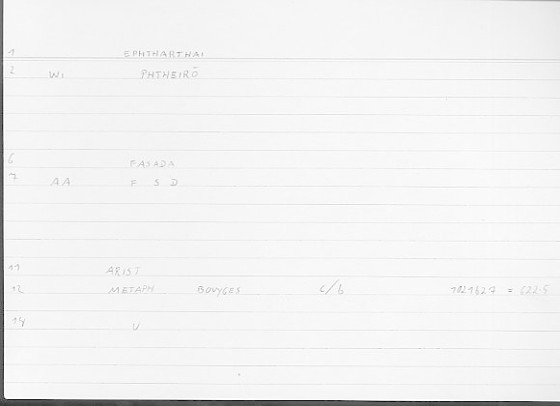 1 EPHTHARTHAI
2 WI PHTHEIRŌ
6 FASADA
7 AA F S D
11 ARIST
12 METAPH BOUYGES C/b 1021b27 = 622.5
14 U